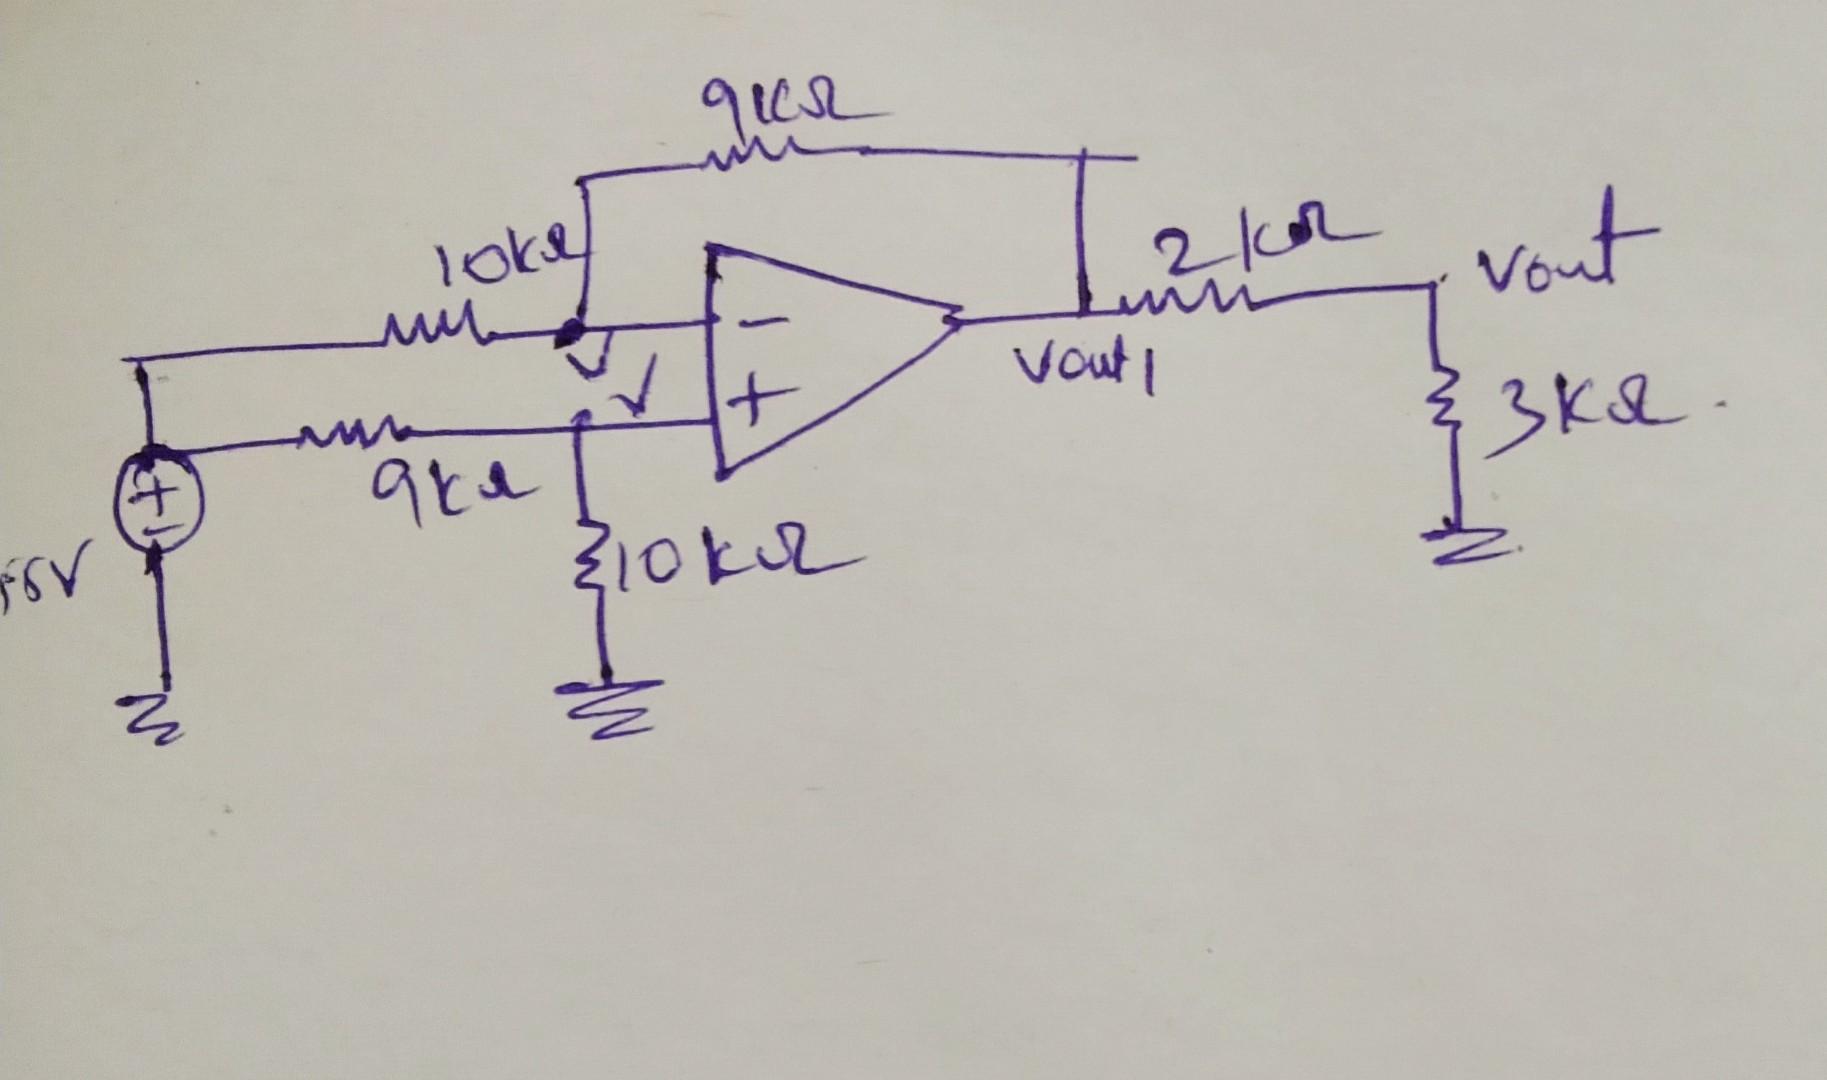 9KΩ
10kΩ
2kΩ
Vout
−
V
V
+
Vout1
3KΩ
+
−
9kΩ
10kΩ